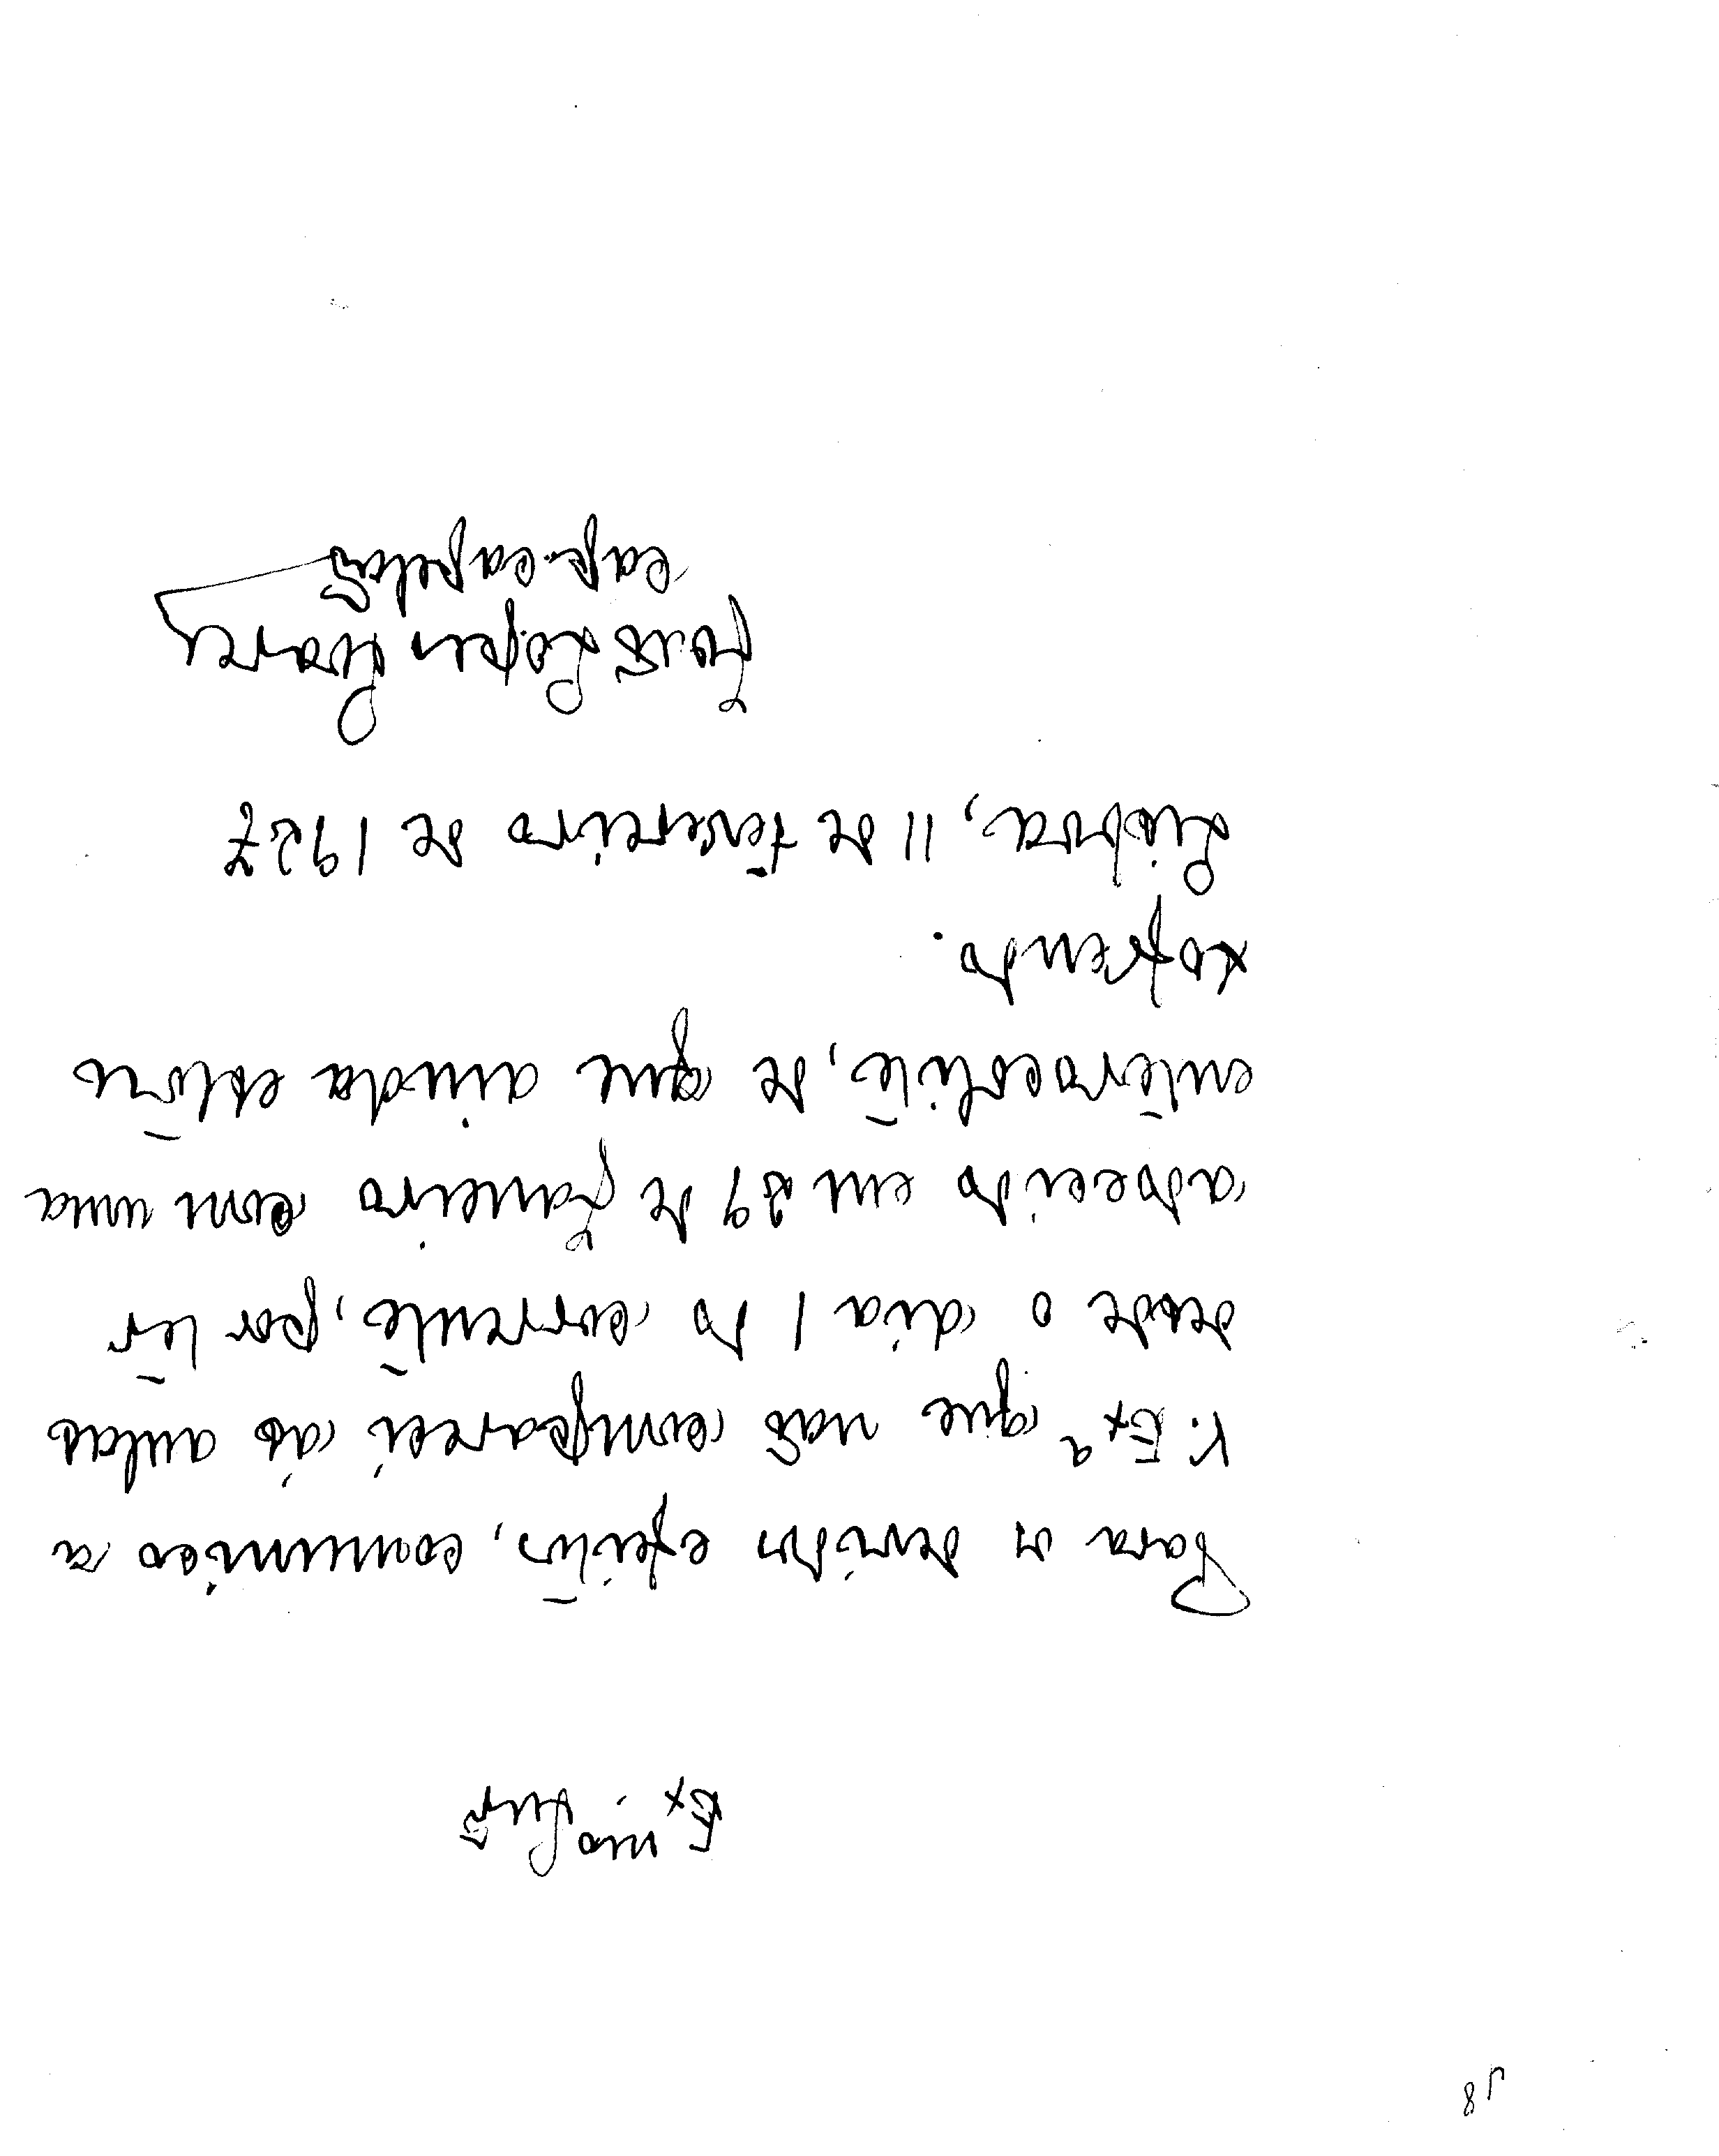 Exmo Snr
Para os devidos efeitos, comunico a
V. Exª que não compareci ás aulas
desde o dia 1 do corrente, por ter
adoecido em 29 de janeiro com uma
enterocolite, de que ainda estou
sofrendo.
Lisboa, 11 de fevereiro de 1927
João Lopes Soares
cap. capelão